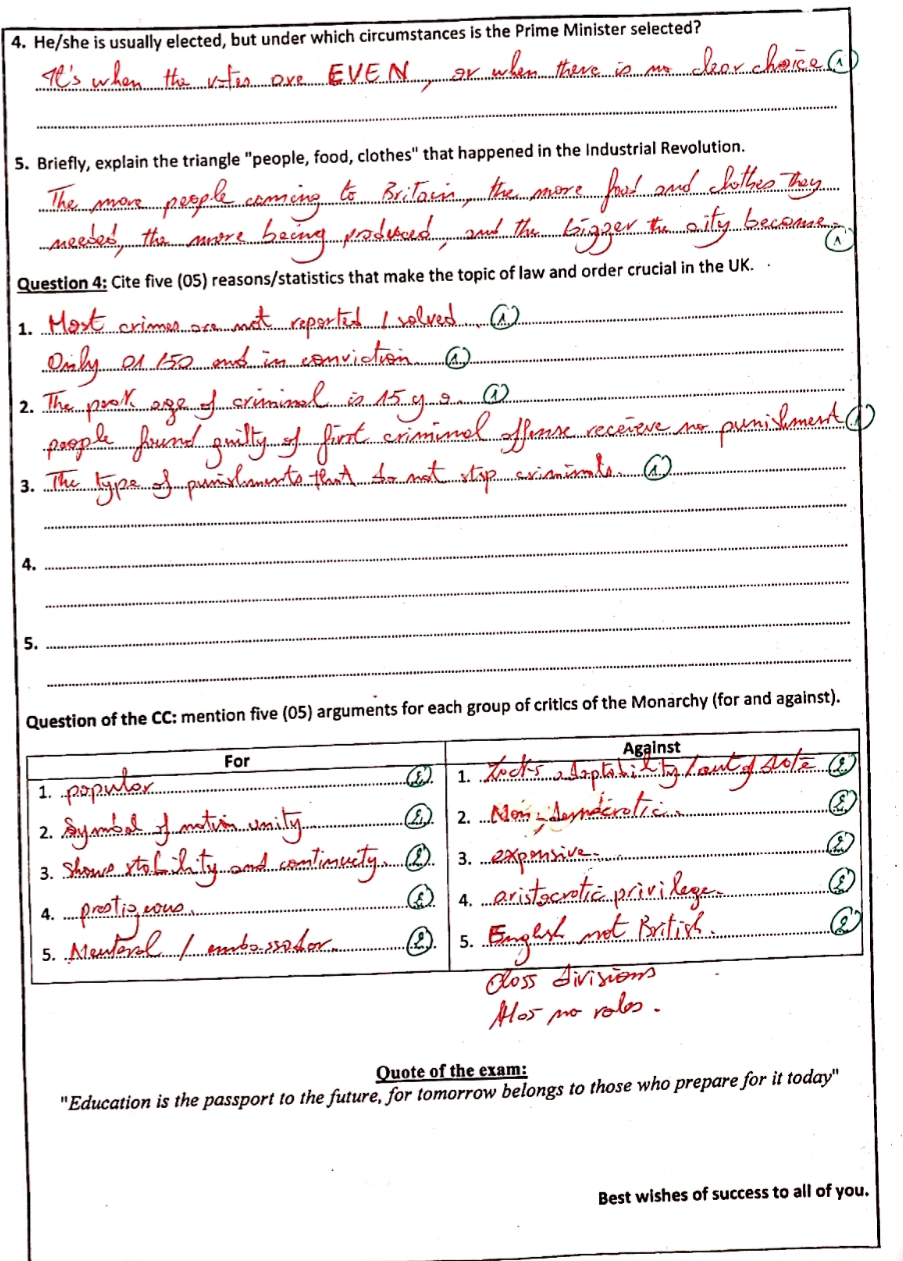 4. He/she is usually elected, but under which circumstances is the Prime Minister selected?
It's when the votes are EVEN, or when there is no clear choice (1)
5. Briefly, explain the triangle "people, food, clothes" that happened in the Industrial Revolution.
The more people coming to Britain, the more food and clothes They
needed, the more being produced, and the bigger the city become. (1)
Question 4: Cite five (05) reasons/statistics that make the topic of law and order crucial in the UK.
1. Most crimes are not reported / solved (1)
Only 01/50 end in conviction (1)
2. The peak age of criminal is 15 y.o. (1)
people found guilty of first criminal offense receieve no punishment (1)
3. The type of punishments that do not stop criminals. (1)
4.
5.
Question of the CC: mention five (05) arguments for each group of critics of the Monarchy (for and against).
For Against
1. popular (2). 1. Lacks adaptability / out of date (2)
2. Symbol of nation unity (2). 2. Non-democratic. (2)
3. Shows stability and continuety. (2). 3. expensive. (2)
4. prestigeous. (2). 4. aristocratic privilege. (2)
5. Neuteral / embassador. (2). 5. English not British. (2)
Class divisions
Has no roles.
Quote of the exam:
"Education is the passport to the future, for tomorrow belongs to those who prepare for it today"
Best wishes of success to all of you.